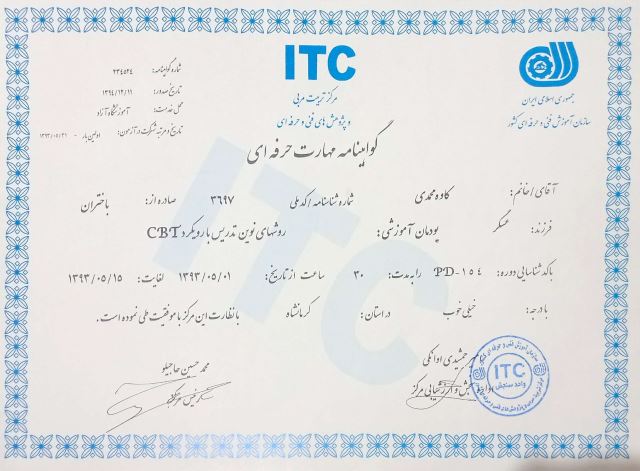 ITC
مرکز تربیت مربی
و پژوهش های فنی و حرفه ای
جمهوری اسلامی ایران
سازمان آموزش فنی و حرفه ای کشور
شماره گواهینامه: ۲۳۴۵۲۴
تاریخ صدور: ۱۳۹۴/۱۲/۱۱
محل خدمت: آموزشگاه آزاد
تاریخ و مرتبه شرکت در آزمون: اولین بار - ۱۳۹۳/۰۵/۲۱
گواهینامه مهارت حرفه ای
آقای/خانم: کاوه محمدی شماره شناسنامه/کدملی ۳۶۹۷ صادره از: باختران
فرزند: عسگر پودمان آموزشی: روشهای نوین تدریس با رویکرد CBT
باکد شناسایی دوره: PD-۱۵٤ را به مدت: ۳۰ ساعت از تاریخ: ۱۳۹۳/۰۵/۰۱ لغایت: ۱۳۹۳/۰۵/۱۵
با درجه: خیلی خوب در استان: کرمانشاه با نظارت این مرکز با موفقیت طی نموده است.
جمشیدی اوانکی
محمد حسین حاجیلو
ITC
واحد سنجش